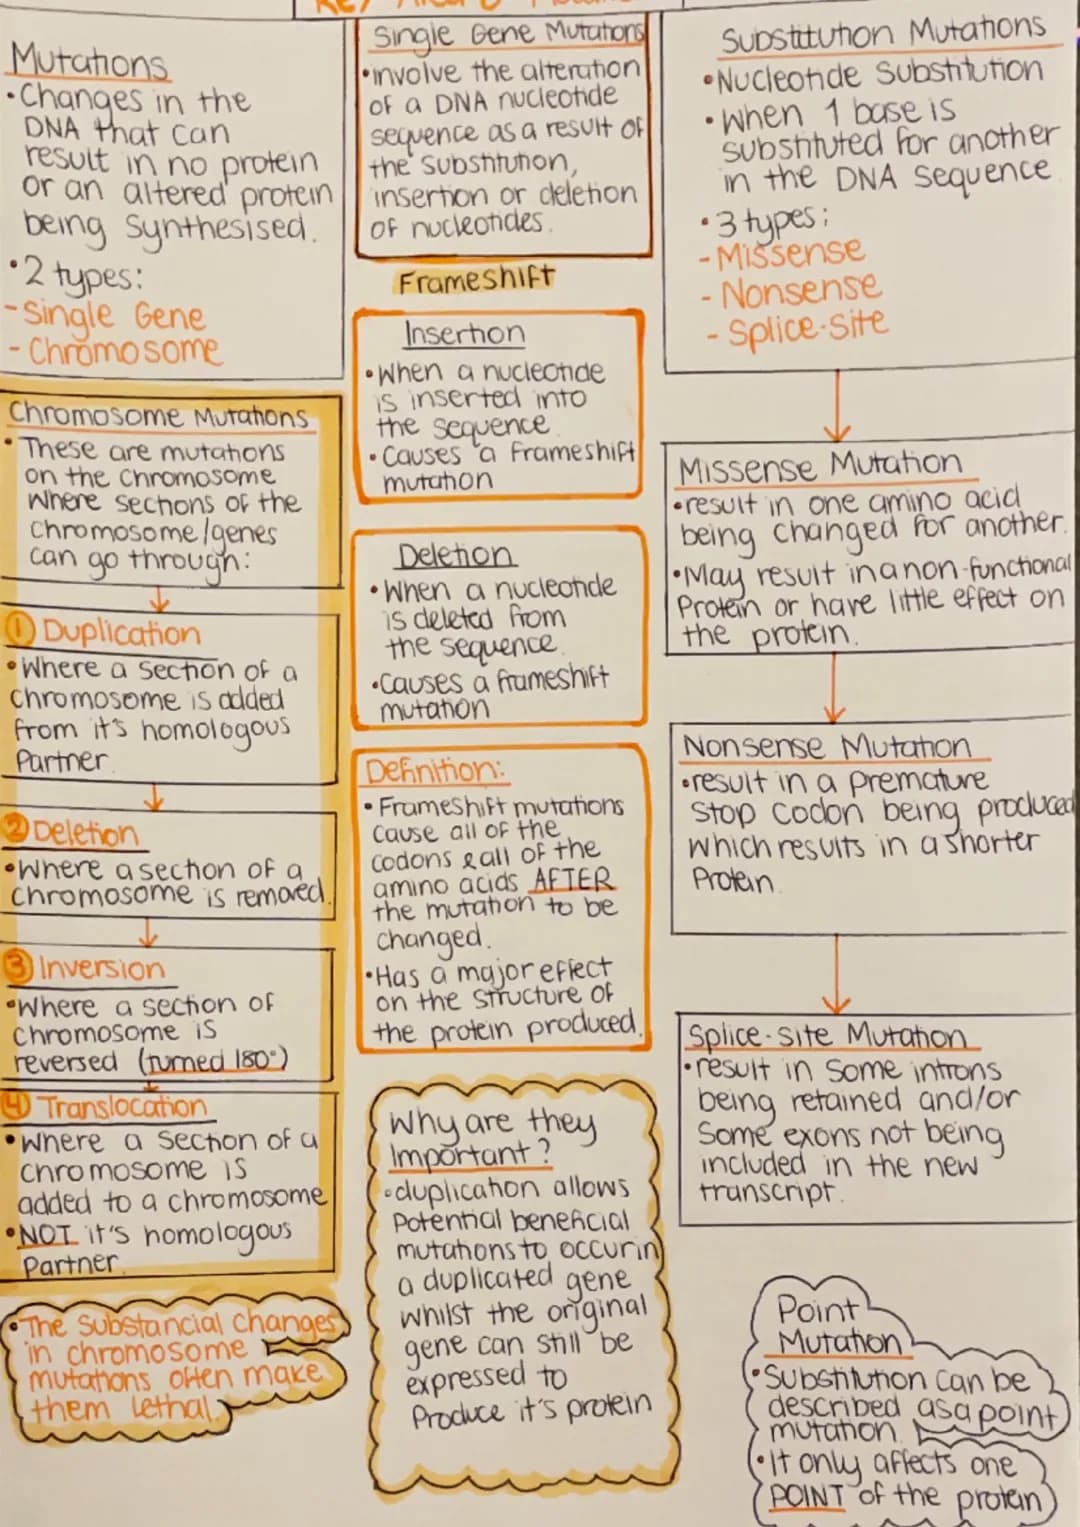 Mutations
•Changes in the
DNA that can
result in no protein
or an altered protein
being synthesised.
•2 types:
-Single Gene
-Chromosome
Chromosome Mutations
•These are mutations
on the chromosome
where sections of the
chromosome/genes
can go through:
① Duplication
•Where a section of a
chromosome is added
from it's homologous
Partner.
② Deletion
•Where a section of a
chromosome is removed.
③ Inversion
•Where a section of
chromosome is
reversed (turned 180°)
④ Translocation
•Where a section of a
chromosome is
added to a chromosome
•NOT it's homologous
Partner.
•The Substancial changes
in chromosome
mutations often make
them Lethal.
Single Gene Mutations
•involve the alteration
of a DNA nucleotide
sequence as a result of
the substitution,
insertion or deletion
of nucleotides.
Frameshift
Insertion
•When a nucleotide
is inserted into
the sequence.
•Causes a frameshift
mutation
Deletion
•When a nucleotide
is deleted from
the sequence.
•Causes a frameshift
mutation
Definition:
•Frameshift mutations
cause all of the
codons & all of the
amino acids AFTER
the mutation to be
changed.
•Has a major effect
on the structure of
the protein produced.
Why are they
Important?
•duplication allows
Potential beneficial
mutations to occur in
a duplicated gene
whilst the original
gene can still be
expressed to
Produce it's protein
Substitution Mutations
•Nucleotide Substitution
•When 1 base is
substituted for another
in the DNA Sequence.
•3 types:
-Missense
-Nonsense
-Splice-Site
Missense Mutation
•result in one amino acid
being changed for another.
•May result in a non-functional
Protein or have little effect on
the protein.
Nonsense Mutation
•result in a premature
Stop Codon being produced
which results in a shorter
Protein.
Splice-site Mutation
•result in some introns
being retained and/or
some exons not being
included in the new
transcript.
Point
Mutation
•Substitution can be
described as a point
mutation.
•It only affects one
POINT of the protein